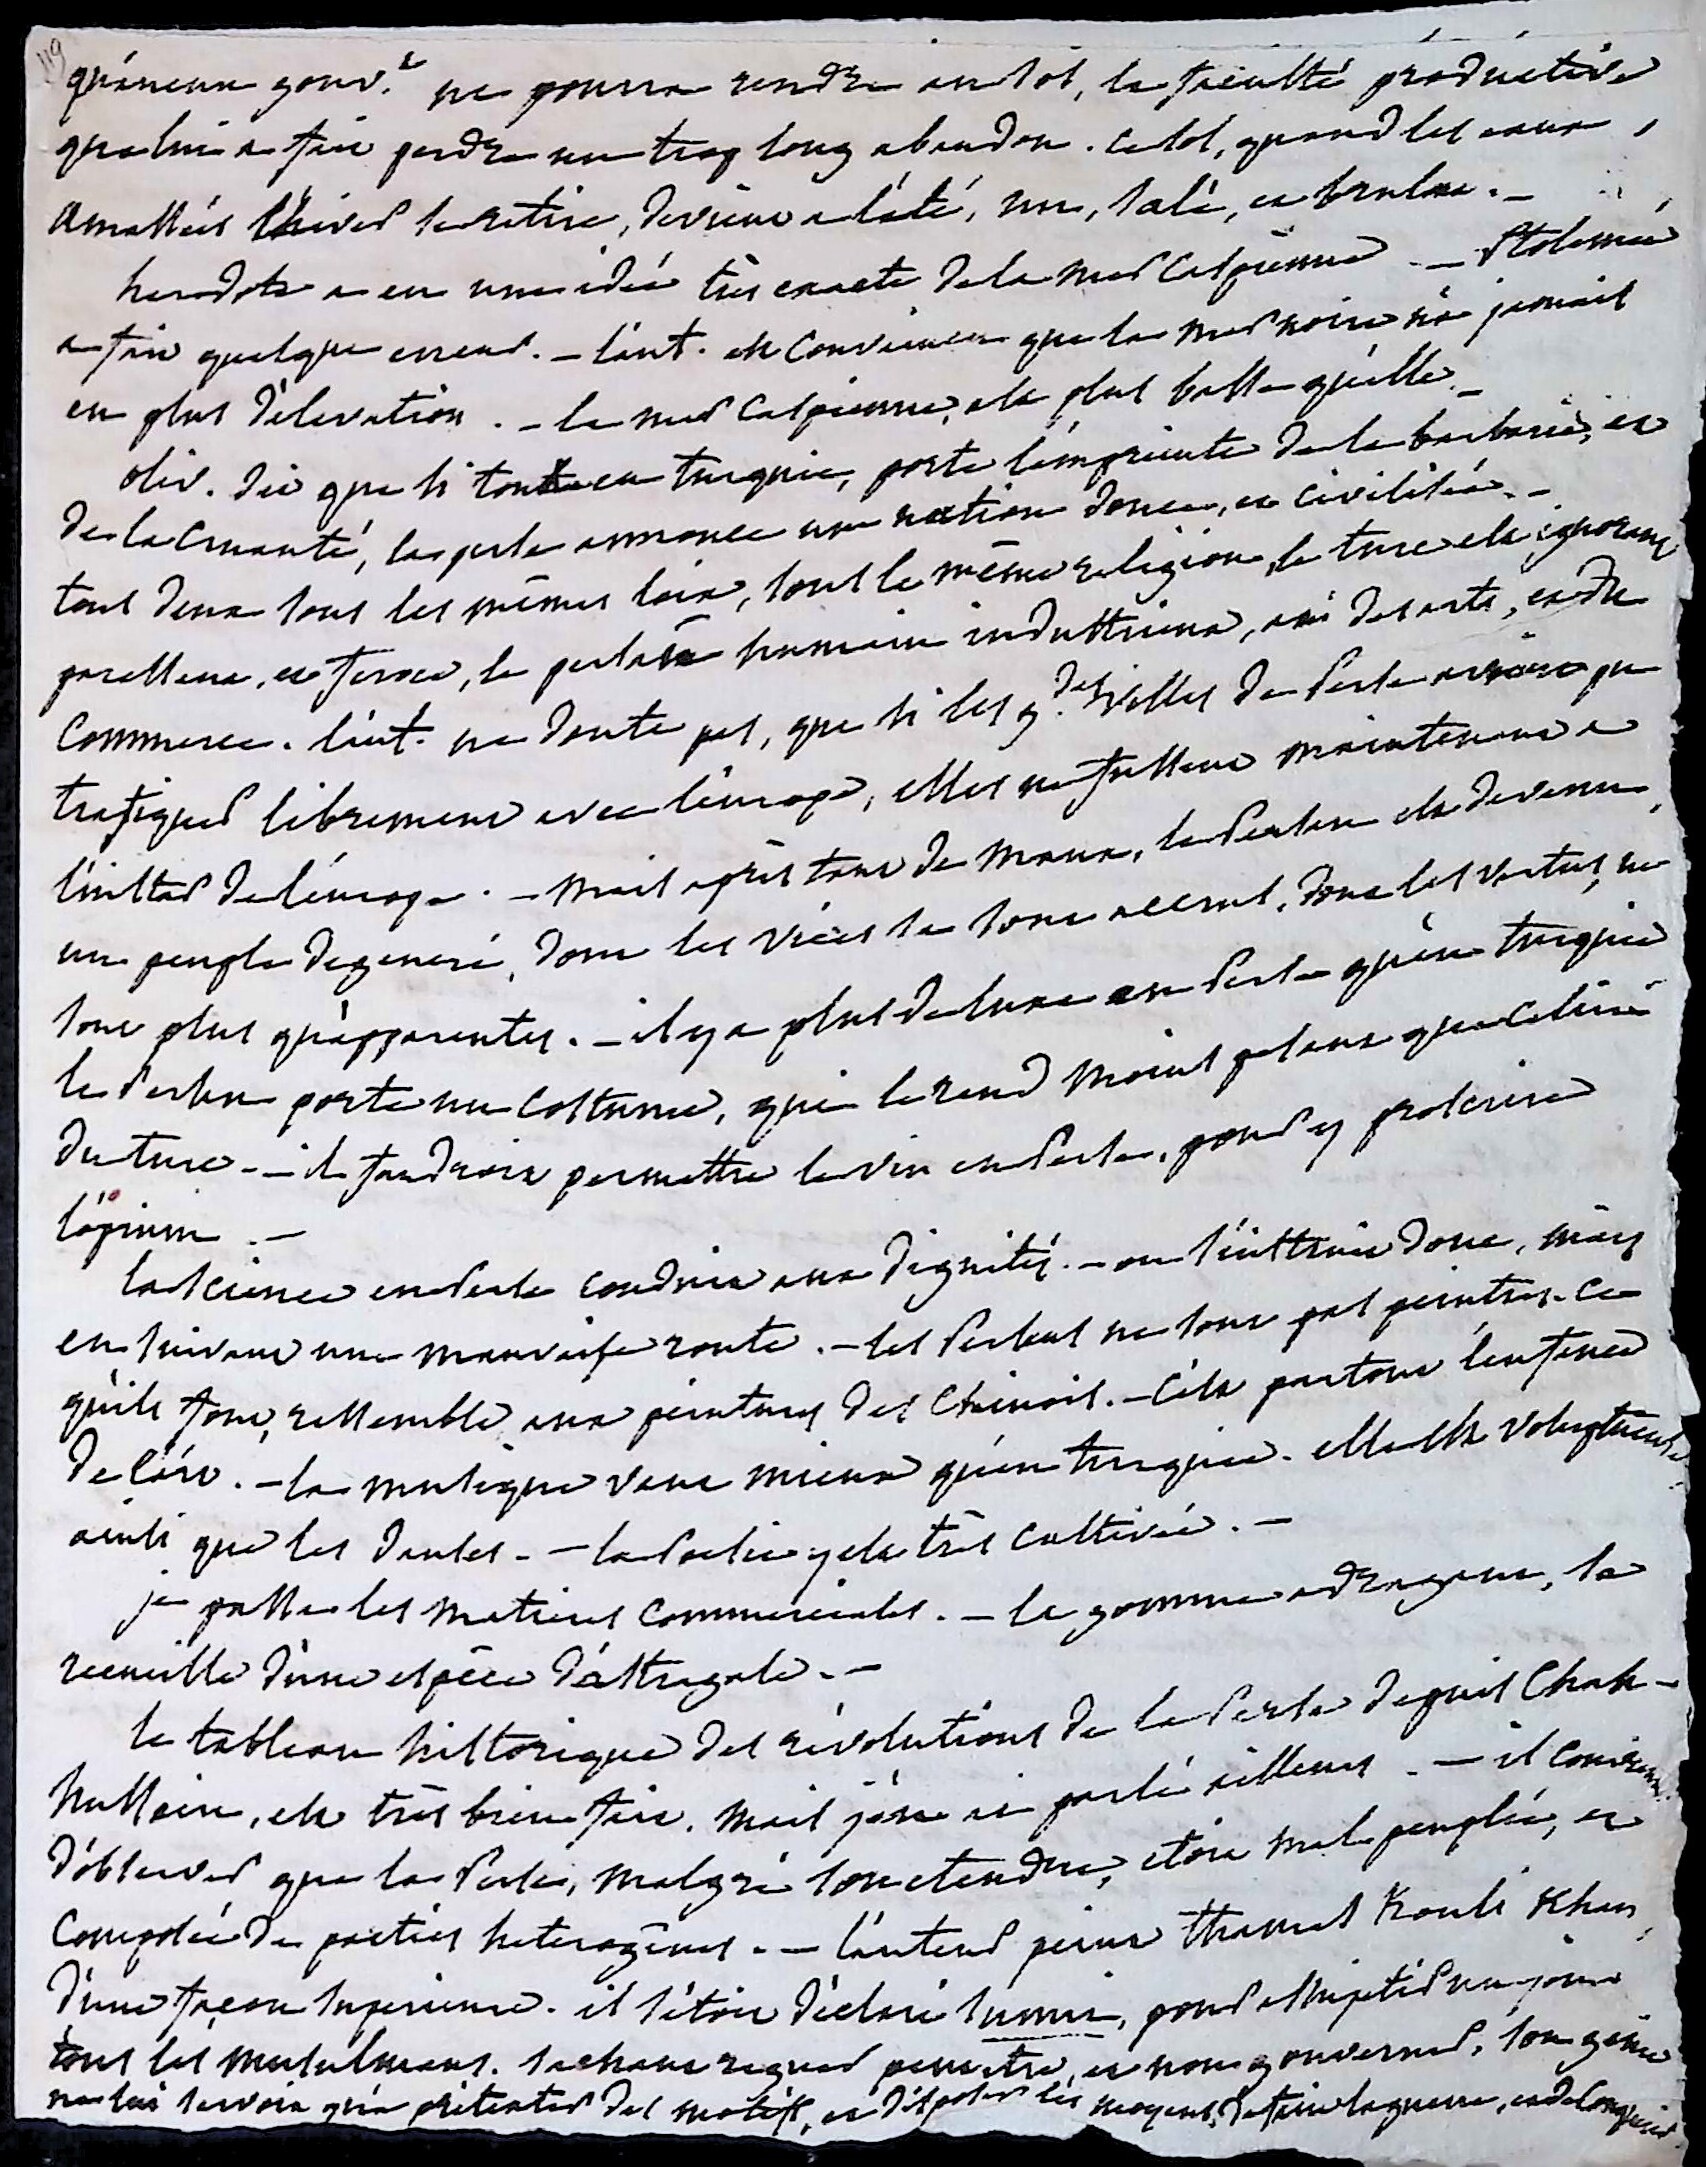 119
qu'aucun gouv.t ne pourra rendre au sol, la faculté productive
que lui a fait perdre un trop long abandon. ce sol, quand les eaux,
amassées l'hiver se retire, devient a l'été, nu, salé, et brulant. —
herodote a eu une idée très exacte de la mer Caspienne. — Ptolemée
a fait quelque erreur. — l'aut. est convaincu que la mer noire n'a jamais
eu plus d'élevation. — la mer Caspienne, est plus basse qu'elle. —
oliv. dit que si tout en turquie, porte l'empreinte de la barbarie, et
de la cruauté, la perse annonce une nation douce, et civilisée. —
tous deux sous les mêmes loix, sous la même religion, le turc est ignorant
paresseux, et feroce, le persan humain industrieux, ami des arts, et du
commerce. l'aut. ne doute pas, que si les g.des villes de Perse avoient pu
trafiquer librement avec l'europe, elles ne fussent maintenant a
l'instar de l'europe. — mais après tant de maux, le Persan est devenu,
un peuple degeneré, dont les vices se sont accrus, dont les vertus, ne
sont plus qu'apparentes. — il y a plus de luxe en Perse qu'en turquie
le Persan porte un costume, qui le rend moins pesant que celui
du turc. — il faudroit permettre le vin en Perse, pour y proscrire
l'opium. —
la science en Perse conduit aux dignités. — on s'instruit donc, mais
en suivant une mauvaise route. — les Persans ne sont pas peintres. ce
qu'ils font, ressemble, aux peintures des Chinois. — c'est partout l'enfance
de l'art. — la musique vaut mieux qu'en turquie. elle est voluptueuse
ainsi que les danses. — la Poesie y est très cultivée. —
je passe les matieres commerciales. — la gomme adragant, se
recueille d'une espèce d'astragale. —
le tableau historique des révolutions de la Perse depuis Chah-
hussein, est très bien fait. mais j'en ai parlé ailleurs. — il convient
d'observer que la Perse, malgré son etendue, étoit mal peuplée, et
composée de parties heterogènes. — l'auteur peint Thamas Kouli Khan,
d'une façon superieure. il s'étoit déclaré sunni, pour assujetir un jour
tous les musulmans. sachant regner peut etre, et non gouverner, son génie
ne lui servoit qu'a prétexter des motifs, et disposer les moyens, de faire la guerre, et de conquérir